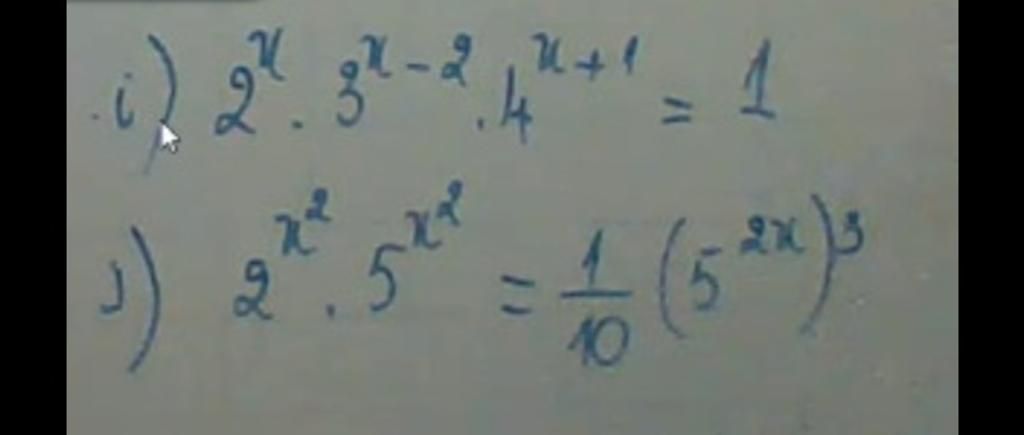 i) 2^x . 3^{x-2} . 4^{x+1} = 1
j) 2^{x^2} . 5^{x^2} = \frac{1}{10} (5^{2x})^3